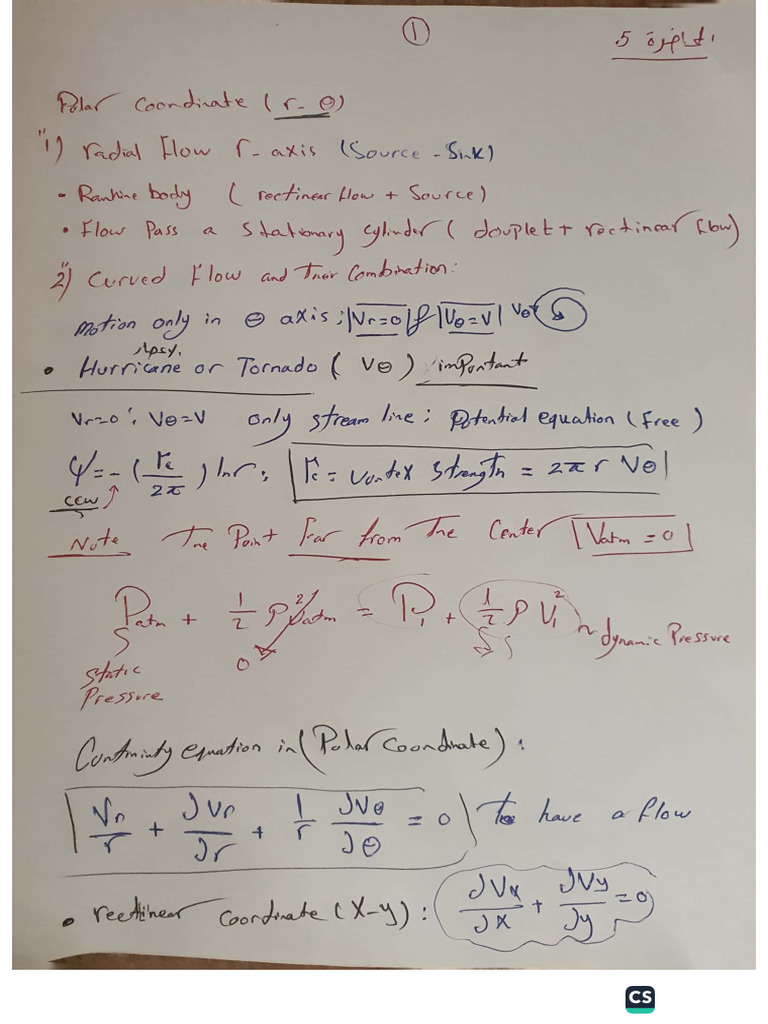 ①
المحاضرة 5
Polar Coordinate (r-θ)
"1) radial Flow r-axis (Source-Sink)
• Rankine body ( rectinear flow + Source)
• Flow Pass a Stationary cylinder ( douplet + rectinear flow)
2)" Curved Flow and Their Combination:
motion only in θ axis; |Vr=0| & |Vθ=V| Vθ
• Hurricane or Tornado ( Vθ ) important
Vr=0 ; Vθ=V only stream line; Potential equation (Free)
Ψ = - (Γc/2π) ln r ; |Γc = Vortex Strength = 2π r Vθ|
ccw
Note The Point Frar from The Center |Vatm = 0|
Patm + 1/2 ρ V²atm = P1 + 1/2 ρ V1² ~ dynamic Pressure
0
Static Pressure
Continuity equation in (Polar Coordinate) :
Vr/r + ∂Vr/∂r + 1/r ∂Vθ/∂θ = 0 To have a flow
• reetlinear Coordinate (X-y) : ∂Vx/∂x + ∂Vy/∂y = 0
CS